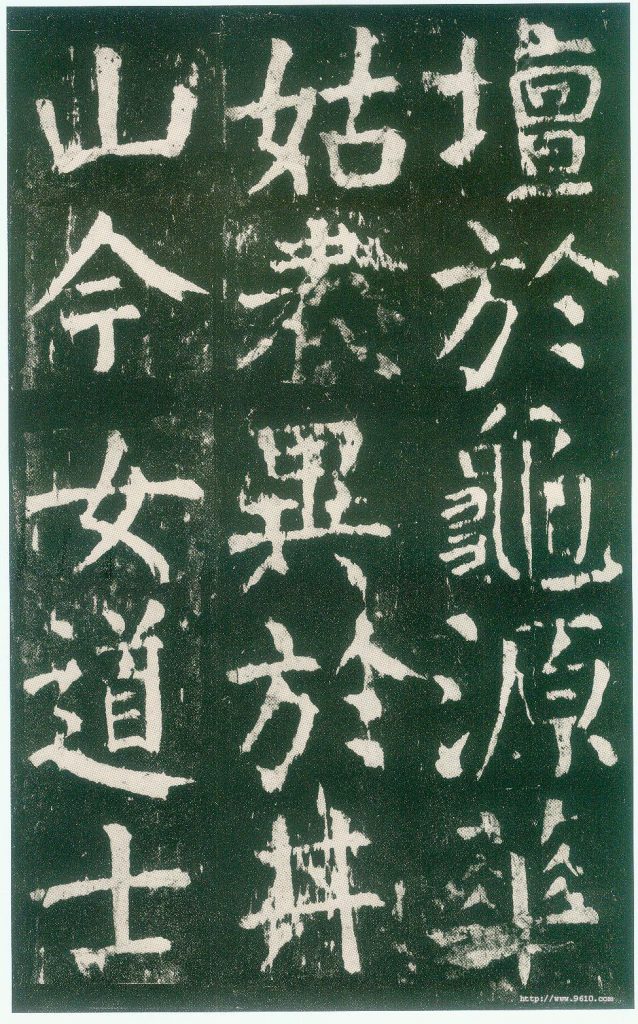 壇於龜源華
姑表異於井
山今女道士
http://www.9610.com